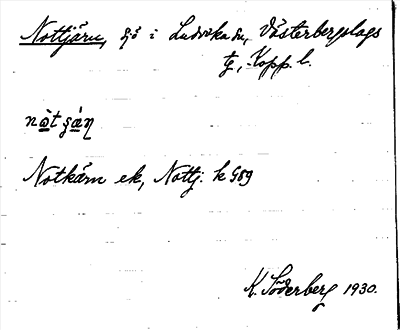 Nottjärn, sjö i Ludvika sn, Västerbergslags
tg, Kopp. l.
nò̱tʂä̱ṇ
Notkärn ek, Nottj. k G89
K. Söderberg 1930.